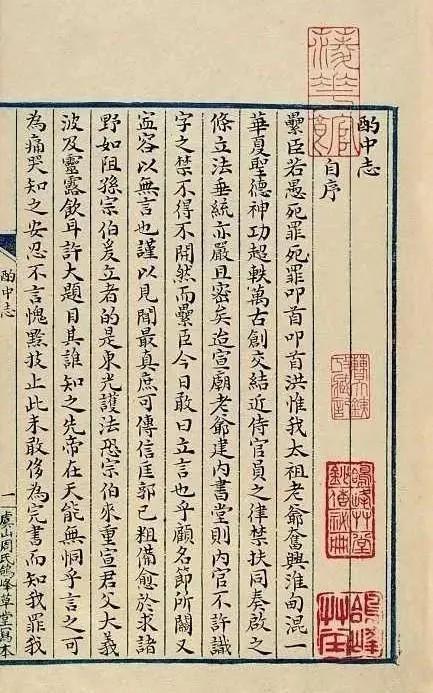 酌中志
自序
纍臣若愚死罪死罪叩首叩首洪惟我太祖老爺奮興淮甸混一
華夏聖德神功超軼萬古創交結近侍官員之律禁扶同奏啟之
條立法垂統亦嚴且密矣迨宣廟老爺建內書堂則內官不許識
字之禁不得不開然而纍臣今日敢曰立言也乎顧名節所關又
寍容以無言也謹以見聞最真庶可傳信匡郭已粗備愈於求諸
野如阻孫宗伯爰立者的是東光護法恐宗伯來重宣君父大義
波及靈露飲耳許大題目其誰知之先帝在天能無恫乎言之可
為痛哭知之安忍不言愧黔技止此未敢侈為完書而知我罪我
酌中志
一
虞山周氏鴿峰草堂寫本
鴿峰草堂
鈔傳祕冊
鴿峰
草莊